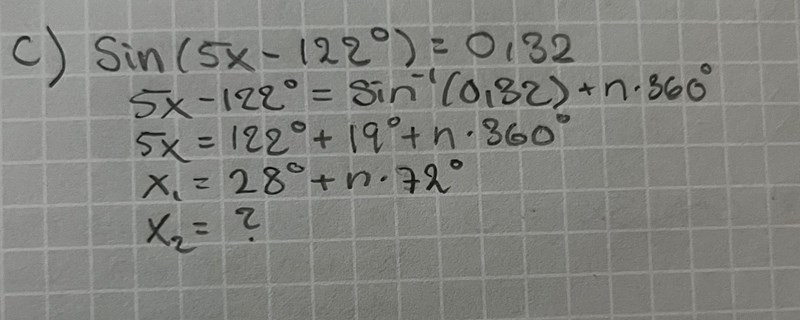 c) Sin(5x - 122°) = 0,32
5x - 122° = Sin⁻¹(0,32) + n·360°
5x = 122° + 19° + n·360°
x₁ = 28° + n·72°
x₂ = ?